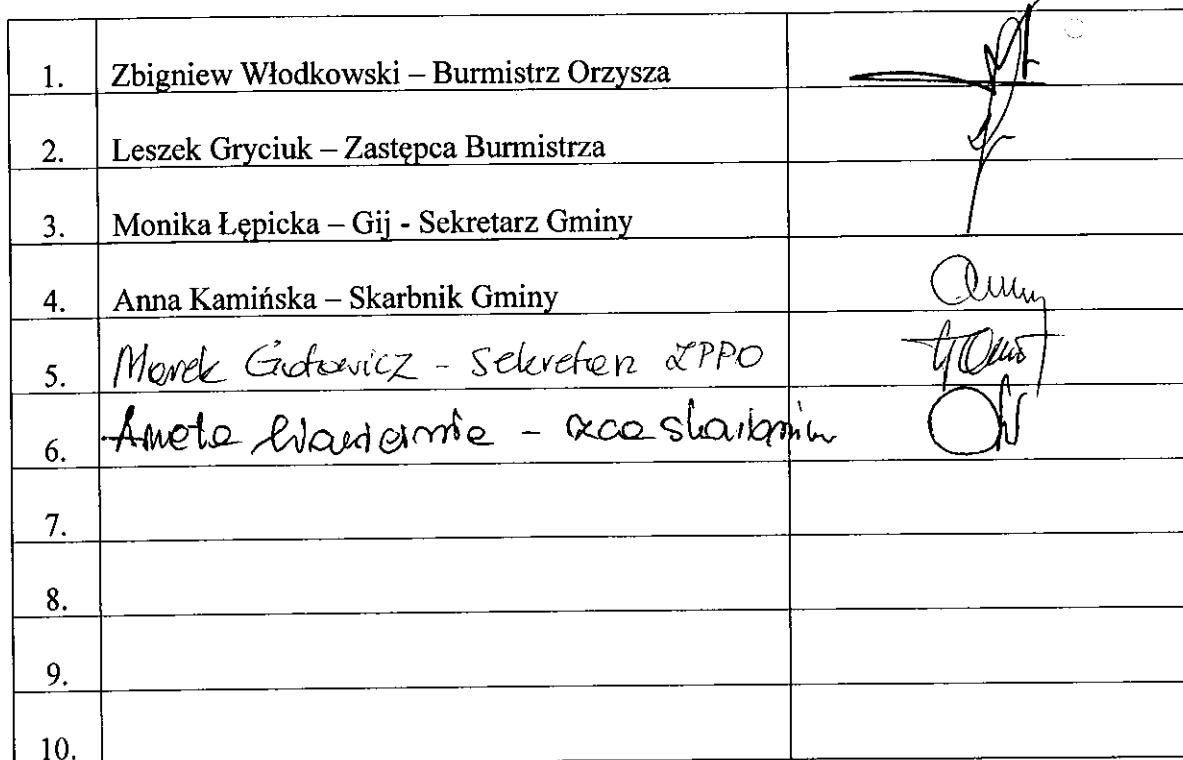 1. Zbigniew Włodkowski – Burmistrz Orzysza
2. Leszek Gryciuk – Zastępca Burmistrza
3. Monika Łępicka – Gij - Sekretarz Gminy
4. Anna Kamińska – Skarbnik Gminy
5. Marek Gutowicz - Sekretarz
6. Aneta -
7.
8.
9.
10.